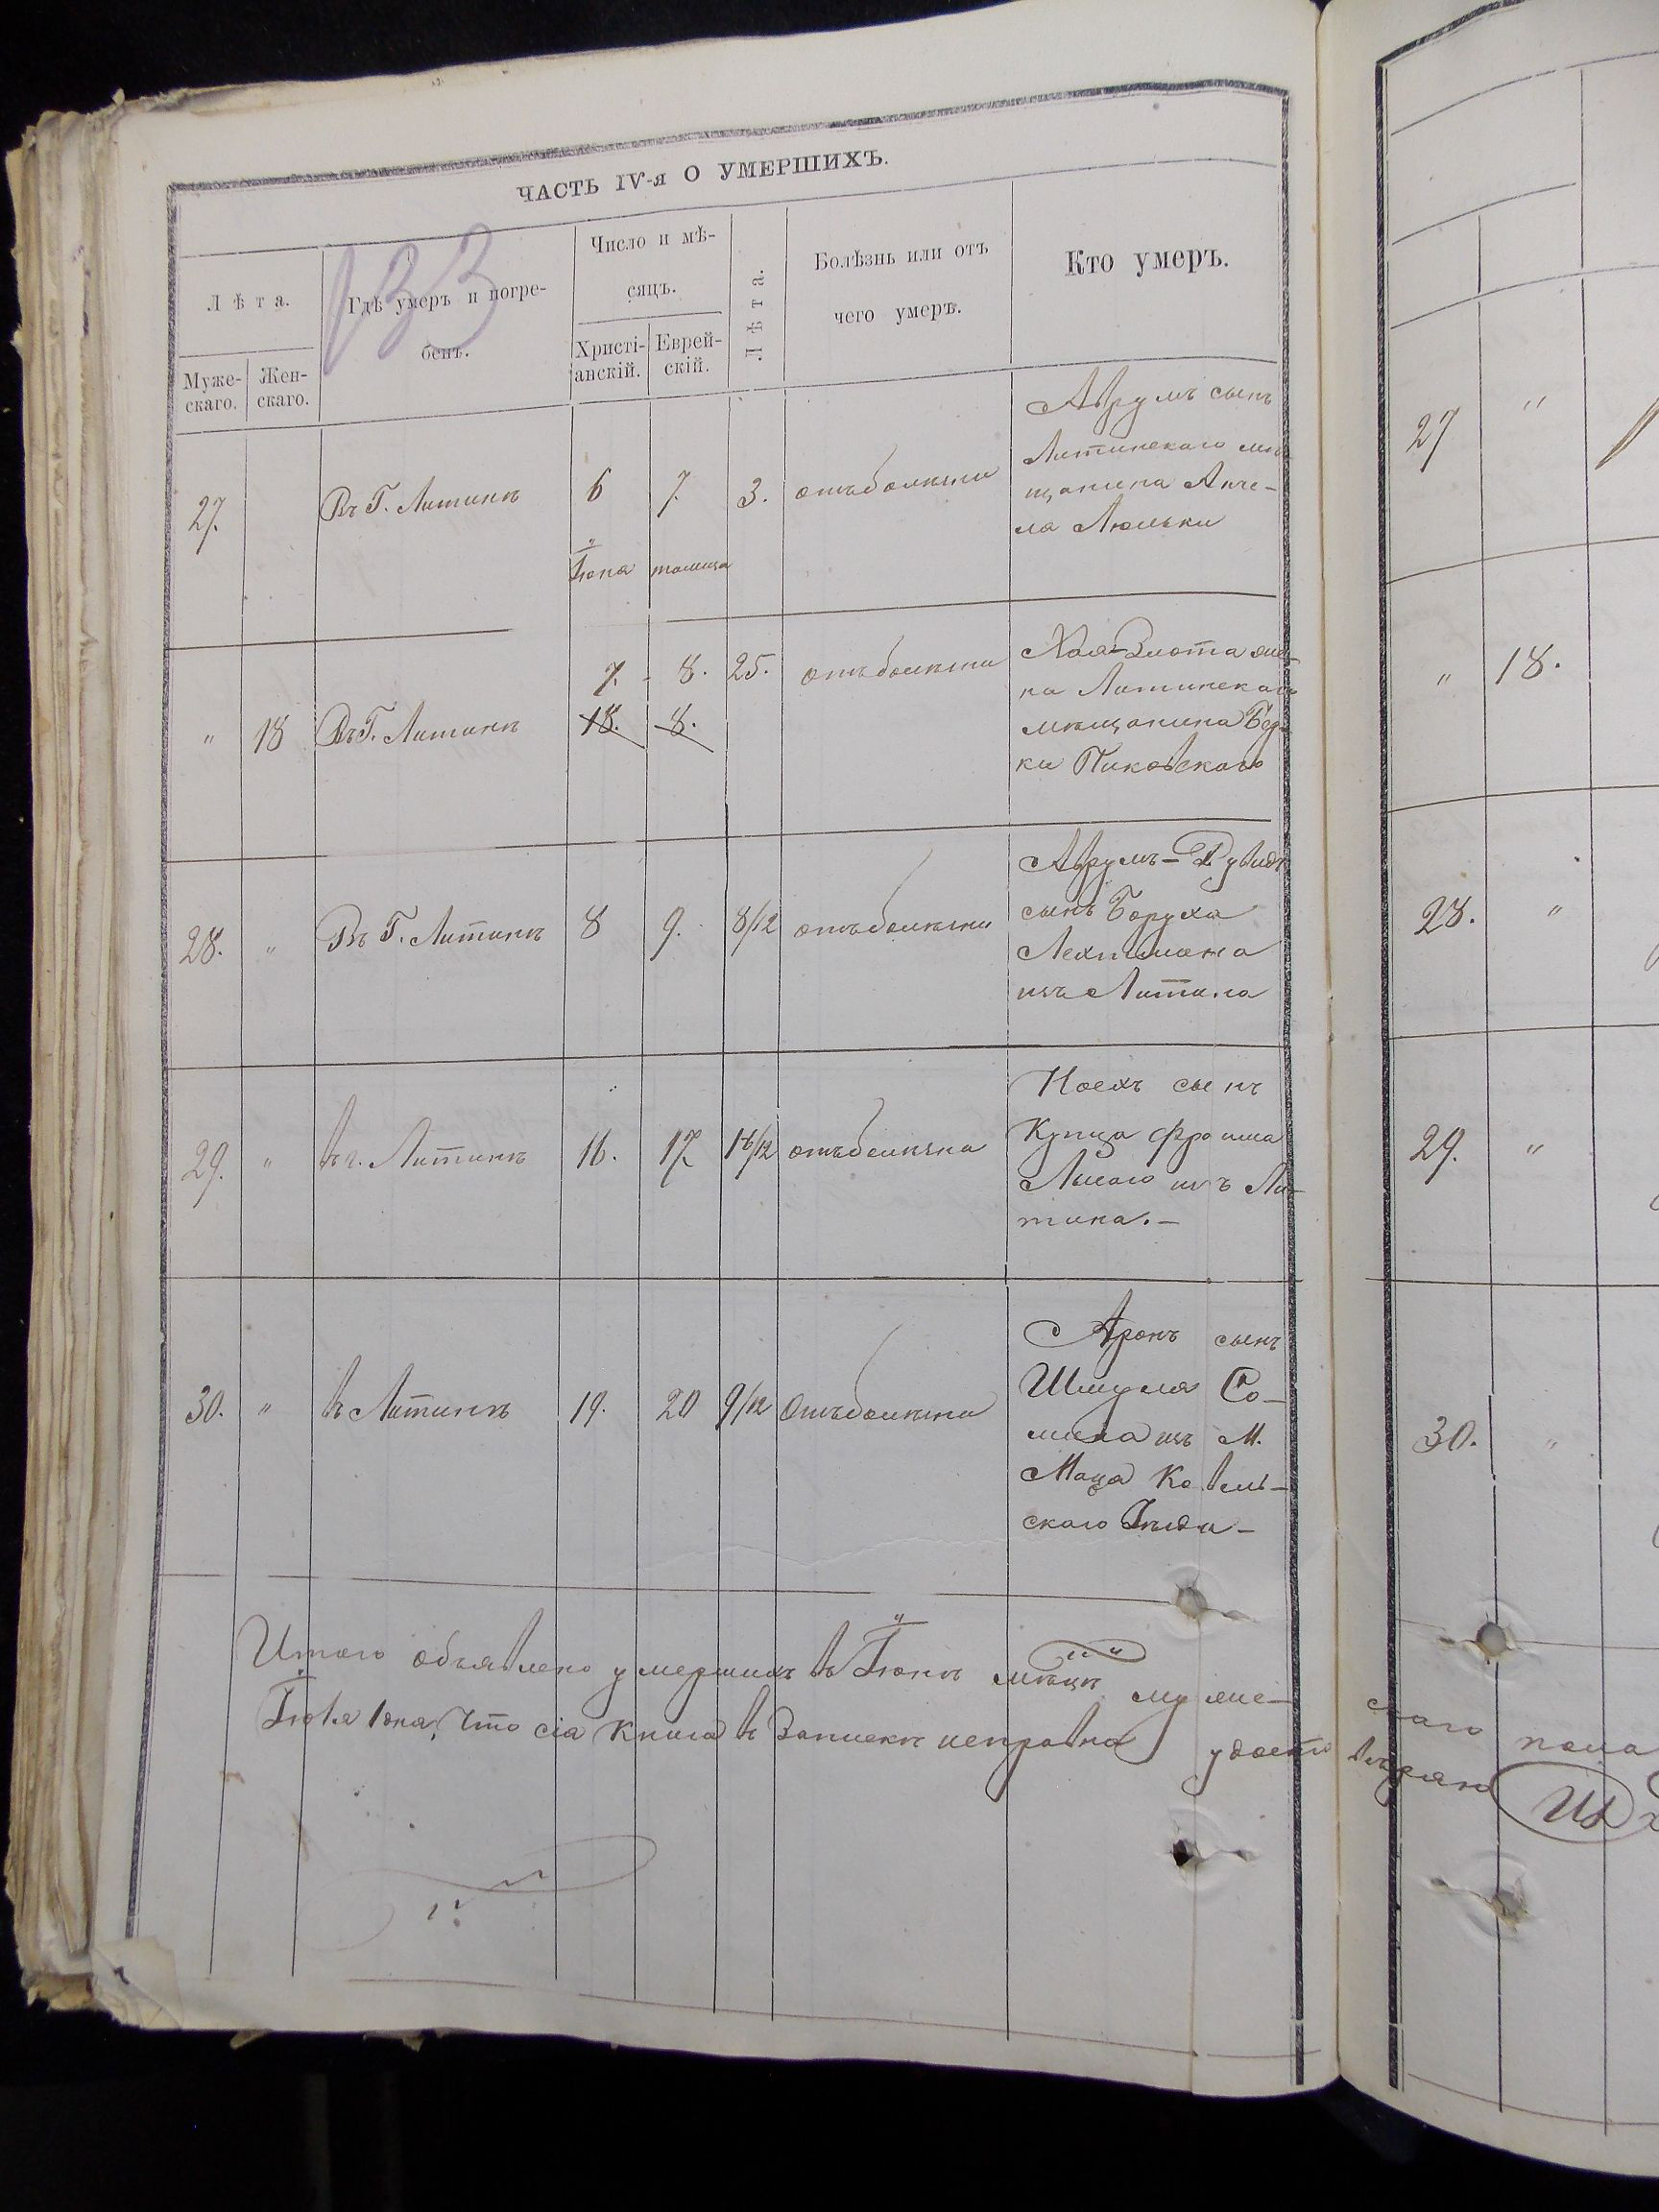 ЧАСТЬ IV-я О УМЕРШИХЪ.
133
Лѣта.
Муже-
скаго.
Жен-
скаго.
Гдѣ умеръ и погре-
бенъ.
Число и мѣ-
сяцъ.
Христі-
анскій.
Еврей-
скій.
Лѣта.
Болѣзнь или отъ
чего умеръ.
Кто умеръ.
27. Въ Г. Литинѣ 6 7. 3. отъ болѣзни
Іюня
Аврумъ сынъ
Литинскаго мѣ
щанина Анче-
ла Люльки
" 18 Въ Г. Литинѣ 7. - 8. 25. отъ болѣзни
18. 8.
Хая-Злота же-
на Литинскаго
мѣщанина Бер-
ки Пиковскаго
28. " Въ Г. Литинѣ 8 9. 8/12 отъ болѣзни
Аврумъ-Дувидъ
сынъ Боруха
Лехтмана
изъ Литина
29. " въ г. Литинѣ 16. 17 16/12 отъ болѣзни
Ноехъ сынъ
Купца Фроима
Лысаго изъ Ли-
тина.-
30. " въ Литинѣ 19. 20 9/12 Отъ болѣзни
Аронъ сынъ
Шмуля
изъ М.
Ковель-
скаго
Итого объявлено умершихъ въ Іюнѣ мѣцѣ муже-
Іюля 1 дня, Что сія Книга въ Запискѣ исправна удосто
27 "
" 18.
28. "
29. "
30. "
скаго пола
вѣряю